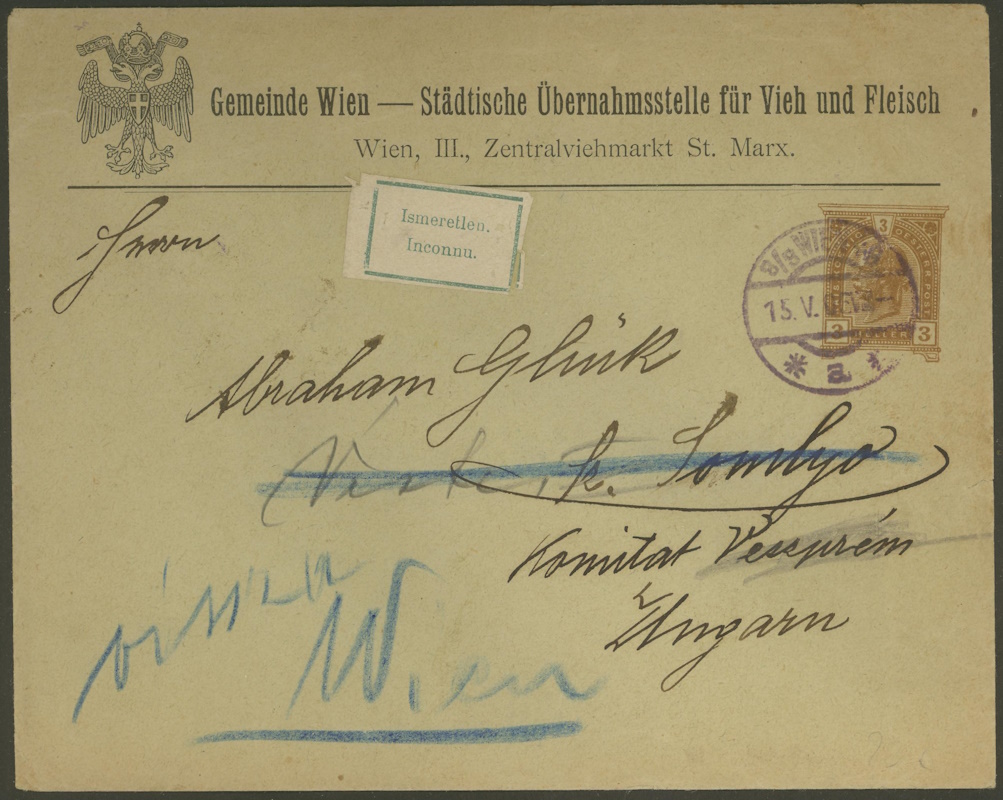 Gemeinde Wien — Städtische Übernahmsstelle für Vieh und Fleisch
Wien, III., Zentralviehmarkt St. Marx.
Ismeretlen.
Inconnu.
Herrn
3
15. V.
3 HELLER 3
* a *
Abraham Glück
k. Somlyo
Komitat Veszprém
Ungarn
vissza
Wien